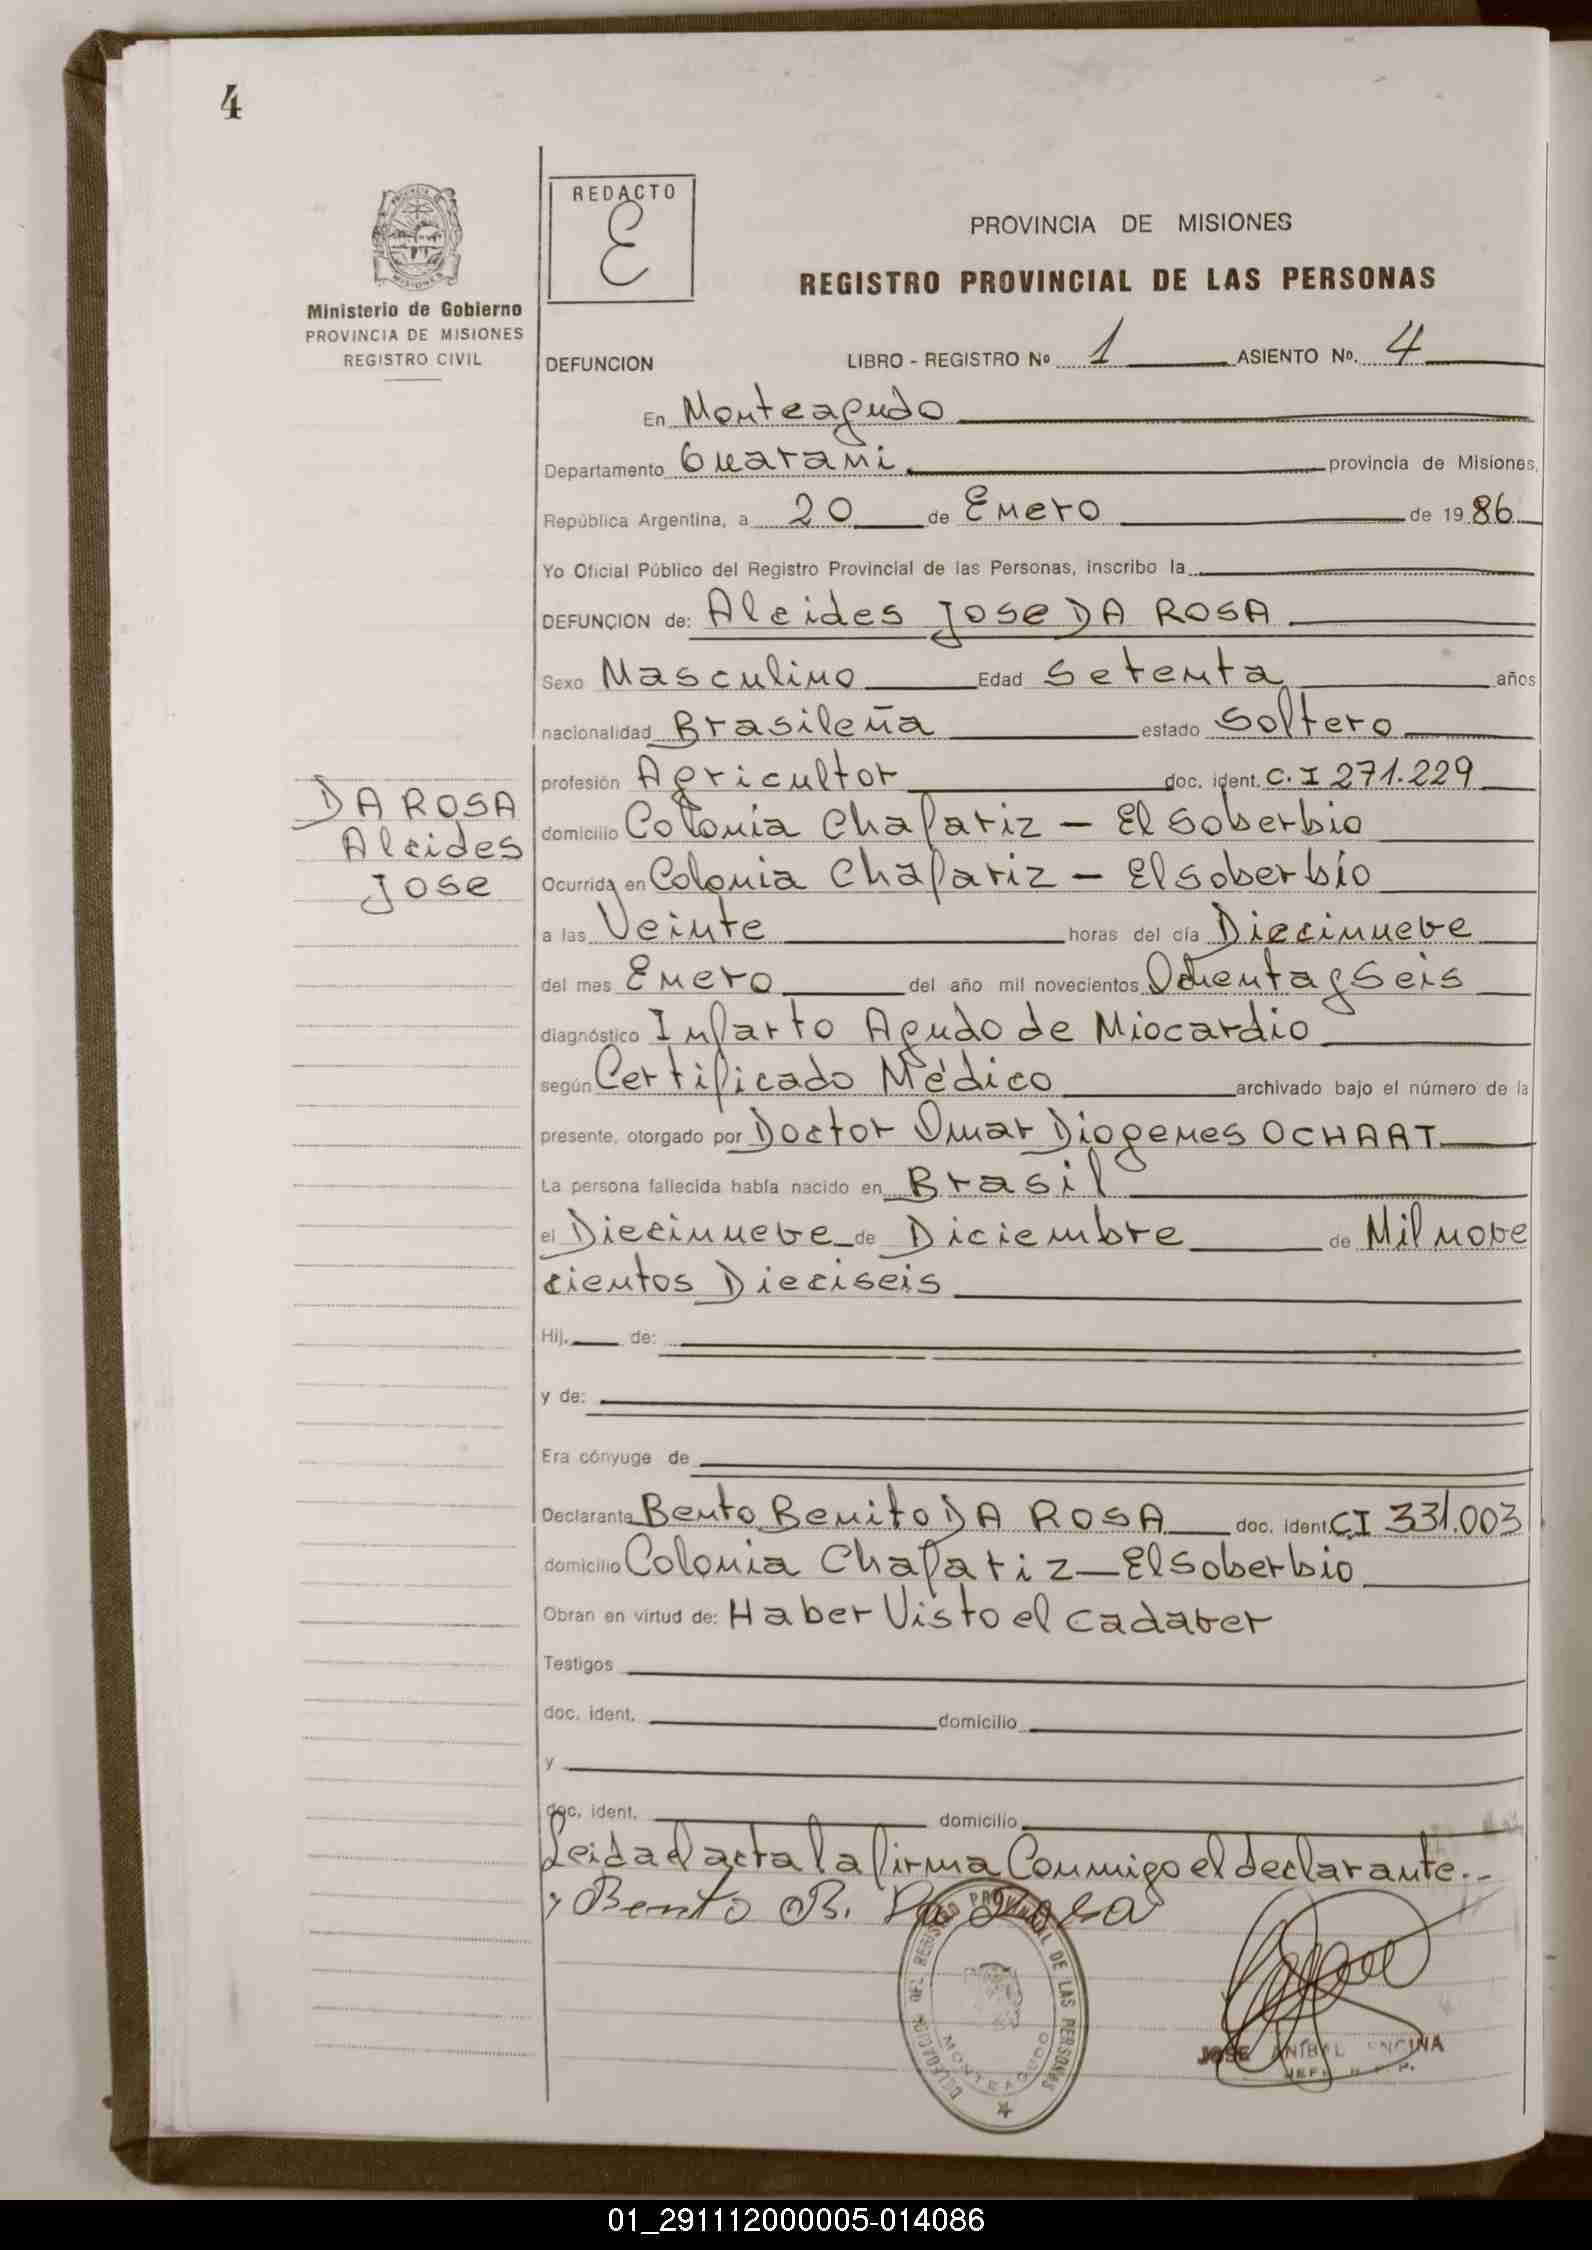 4
REDACTO
E
PROVINCIA DE MISIONES
REGISTRO PROVINCIAL DE LAS PERSONAS
Ministerio de Gobierno
PROVINCIA DE MISIONES
REGISTRO CIVIL
DEFUNCION LIBRO - REGISTRO Nº 1 ASIENTO Nº. 4
En Monteagudo
Departamento Guarani provincia de Misiones,
República Argentina, a 20 de Enero de 1986
Yo Oficial Público del Registro Provincial de las Personas, inscribo la
DEFUNCION de: Alcides Jose DA ROSA
Sexo Masculino Edad Setenta años
nacionalidad Brasileña estado Soltero
profesión Agricultor doc. ident. C.I 271.229
DA ROSA
Alcides
Jose
domicilio Colonia Chafariz - El Soberbio
Ocurrida en Colonia Chafariz - El Soberbio
a las Veinte horas del día Diecinueve
del mes Enero del año mil novecientos Ochenta y Seis
diagnóstico Infarto Agudo de Miocardio
según Certificado Médico archivado bajo el número de la
presente, otorgado por Doctor Omar Diogenes OCHAAT
La persona fallecida había nacido en Brasil
el Diecinueve de Diciembre de Mil nove
cientos Dieciseis
Hij. de:
y de:
Era cónyuge de
Declarante Bento Benito DA ROSA doc. ident. CI 331.003
domicilio Colonia Chafariz - El Soberbio
Obran en virtud de: Haber Visto el cadaver
Testigos
doc. ident. domicilio
y
doc. ident. domicilio
Leida el acta la firma Conmigo el declarante.-
Bento B. Da Rosa
DELEGACION DEL REGISTRO PROVINCIAL DE LAS PERSONAS
MONTEAGUDO
JOSE ANIBAL ENCINA
JEFE
01_291112000005-014086